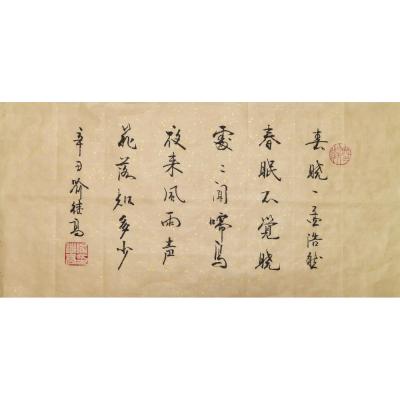 春晓、孟浩然
春眠不覺晓
處々闻啼鸟
夜来风雨声
花落知多少
辛丑喻高